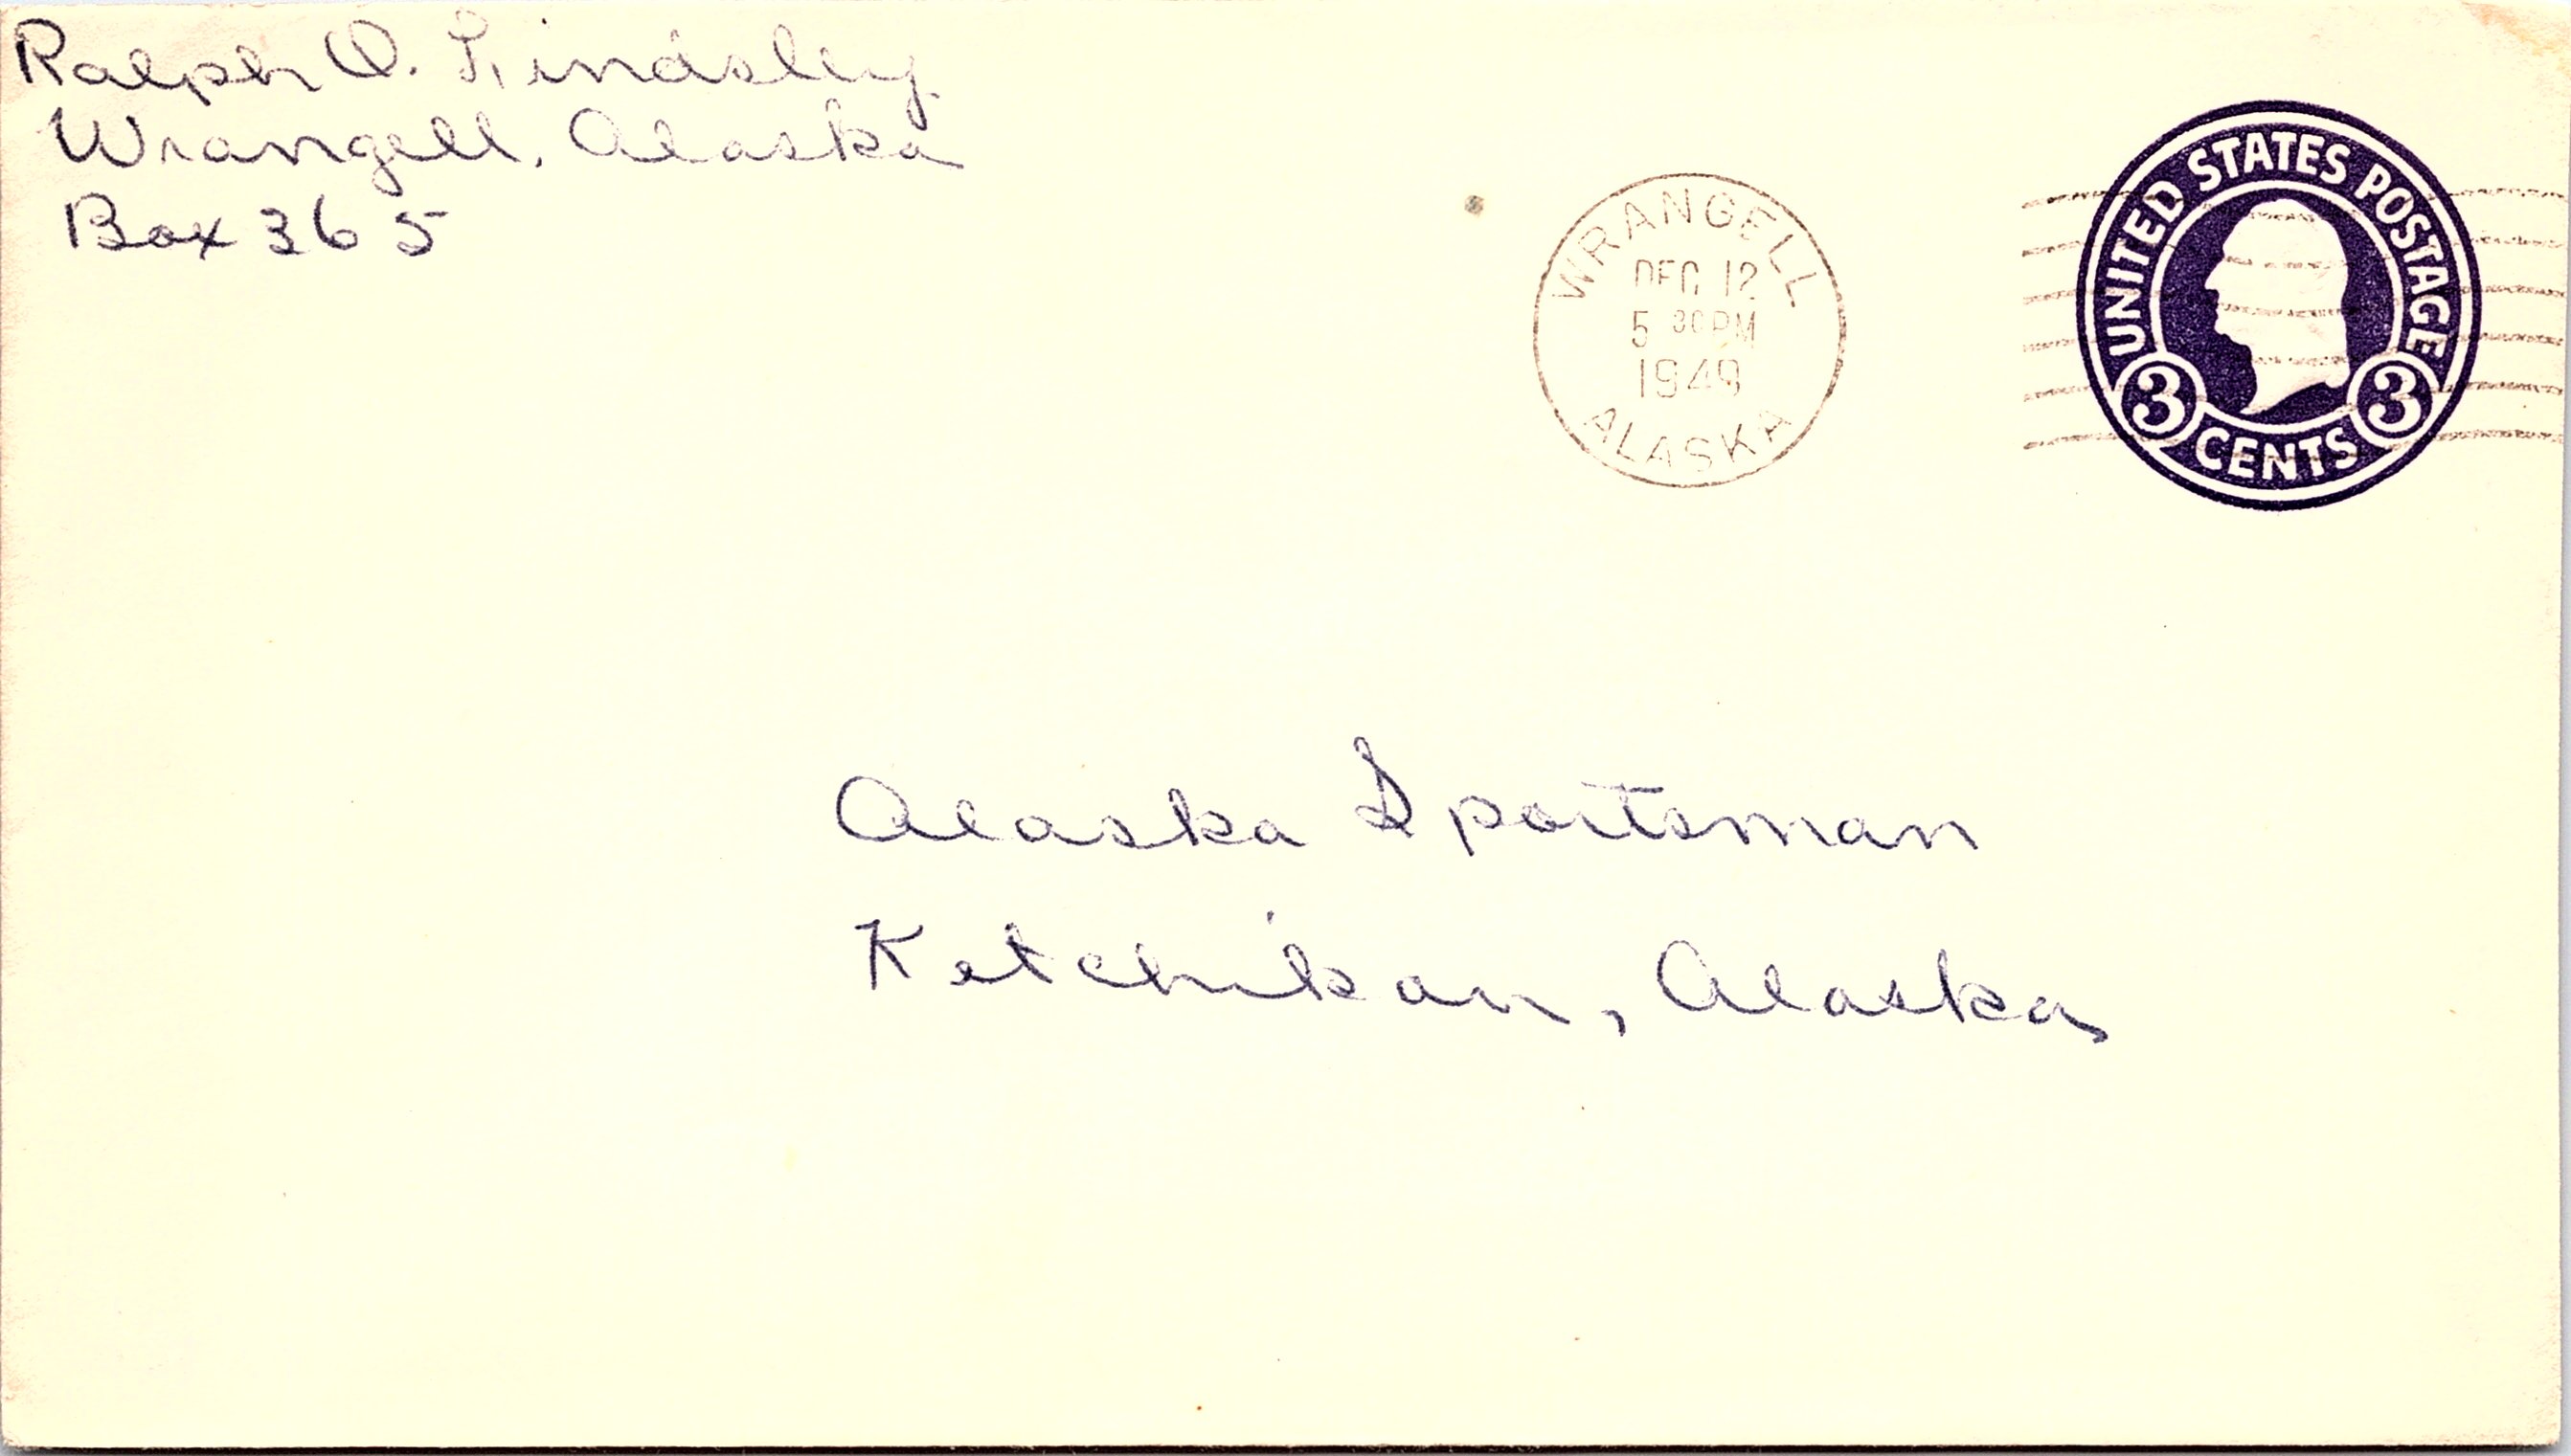 Ralph O. Lindsley
Wrangell, Alaska
Box 365
WRANGELL
DEC 12
5 30 PM
1949
ALASKA
UNITED STATES POSTAGE
3 CENTS 3
Alaska Sportsman
Ketchikan, Alaska